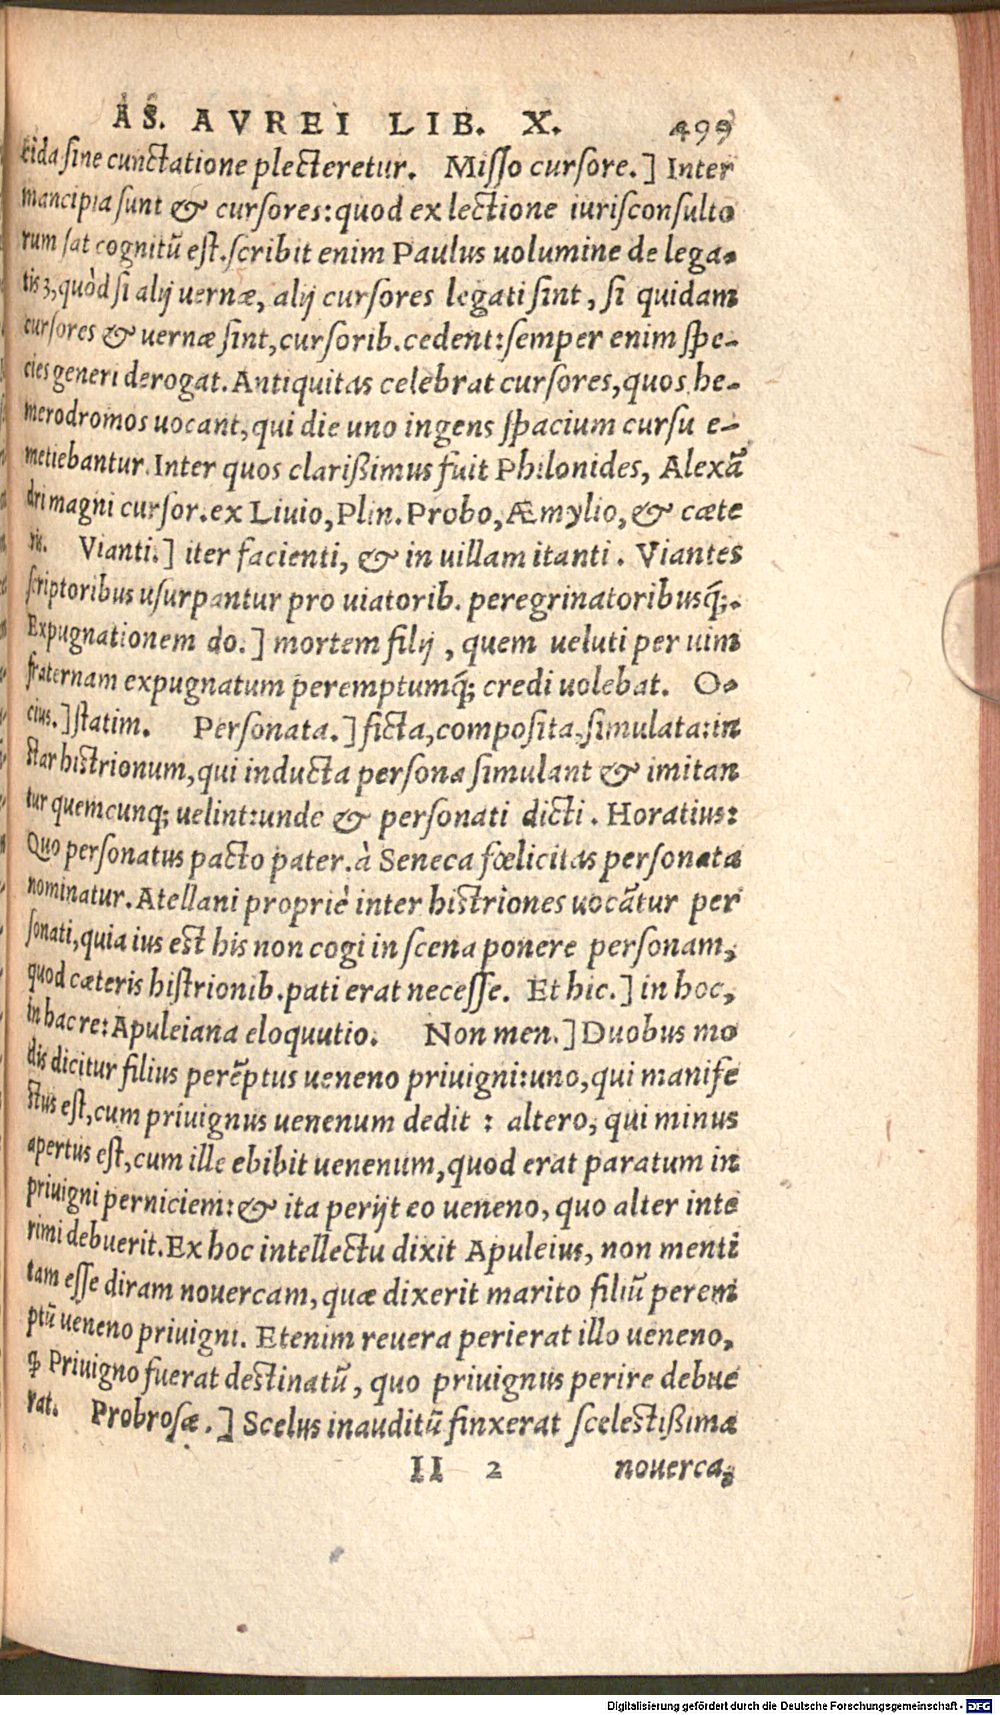 AS. AVREI LIB. X. 499
cida sine cunctatione plecteretur. Misso cursore.] Inter
mancipia sunt & cursores: quod ex lectione iurisconsulto
rum sat cognitū est. scribit enim Paulus uolumine de lega-
tis 3, quòd si alij uernæ, alij cursores legati sint, si quidam
cursores & uernæ sint, cursorib. cedent: semper enim spe-
cies generi derogat. Antiquitas celebrat cursores, quos he-
merodromos uocant, qui die uno ingens spacium cursu e-
metiebantur. Inter quos clarißimus fuit Philonides, Alexā
dri magni cursor. ex Liuio, Plin. Probo, Æmylio, & cæte
ris. Vianti.] iter facienti, & in uillam itanti. Viantes
scriptoribus usurpantur pro uiatorib. peregrinatoribusq;.
Expugnationem do.] mortem filij, quem ueluti per uim
fraternam expugnatum peremptumq́; credi uolebat. O-
cius.] statim. Personata.] ficta, composita, simulata: in
star histrionum, qui inducta persona simulant & imitan
tur quemcunq; uelint: unde & personati dicti. Horatius:
Quo personatus pacto pater. à Seneca fœlicitas personata
nominatur. Atellani propriè inter histriones uocātur per
sonati, quia ius est his non cogi in scena ponere personam,
quod cæteris histrionib. pati erat necesse. Et hic.] in hoc,
in hac re: Apuleiana eloquutio. Non men.] Duobus mo
dis dicitur filius perēptus ueneno priuigni: uno, qui manife
stus est, cum priuignus uenenum dedit : altero, qui minus
apertus est, cum ille ebibit uenenum, quod erat paratum in
priuigni perniciem: & ita perijt eo ueneno, quo alter inte
rimi debuerit. Ex hoc intellectu dixit Apuleius, non menti
tam esse diram nouercam, quæ dixerit marito filiū perem
ptū ueneno priuigni. Etenim reuera perierat illo ueneno,
ꝙ Priuigno fuerat destinatū, quo priuignus perire debue
rat. Probrosæ.] Scelus inauditū finxerat scelestißima
II 2 nouerca,
Digitalisierung gefördert durch die Deutsche Forschungsgemeinschaft - DFG